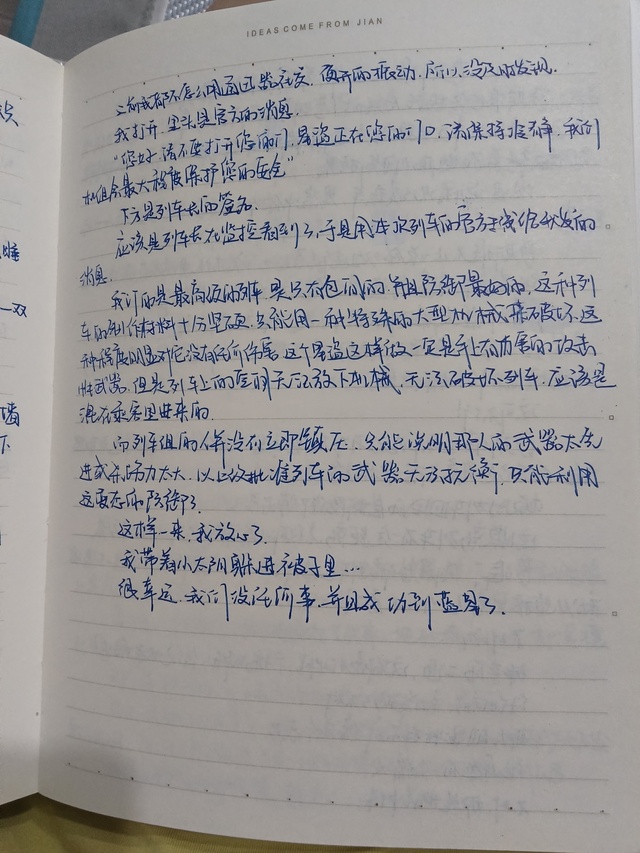 IDEAS COME FROM JIAN
之前我都不怎么用通讯器社交,便开的振动,所以没及时发现.
我打开,里头是官方的消息.
"您好,请不要打开您的门,星盗正在您的门口,请保持冷静,我们
机组会最大程度保护您的安全"
下方是列车长的签名.
应该是列车长在监控看到了,于是用本次列车的官方于线给我发的
消息.
我订的是最高级的列车,是只有包间的,并且防御最好的,这种列
车的制作材料十分坚硬,只能用一种特殊的大型机械来破坏,这
种程度明显对它没有任何伤害,这个星盗这样做,一定是带上有力量的攻击
性武器,但是列车上的空间无法放下机械,无法破坏列车,应该是
混在乘客里进来的.
而列车组的人并没有立即镇压,只能说明那人的武器太先
进或杀伤力太大,以这批准列车的武器无法抗衡,只能利用
这变态的防御了.
这样一来,我放心了.
我带着小太阳躲进被子里...
很幸运,我们没任何事,并且成功到蓝星了.
双
墙
下